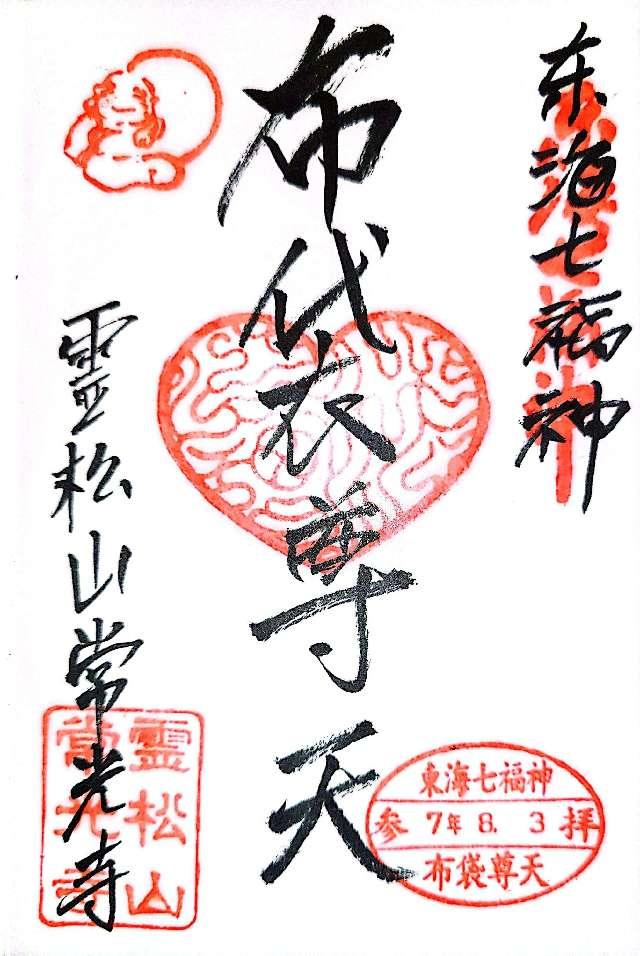 東海七福神
布袋尊天
霊松山常光寺
東海七福神
参 7年 8. 3 拝
布袋尊天
霊松山
常光寺